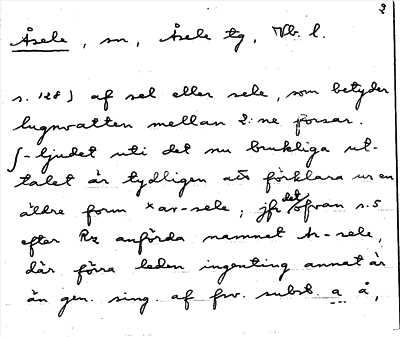 2
Åsele, sn, Åsele tg, Vb. l.
s. 128) af sel eller sele, som betyder
lugnvatten mellan 2:ne forsar.
ʃ-ljudet uti det nu brukliga ut-
talet är tydligen att förklara ur en
äldre form *ar-sele; jfr det ofvan s. 5
efter Rz anförda namnet Ar-sele,
där förra leden ingenting annat är
än gen. sing. af fsv. subst. a å,